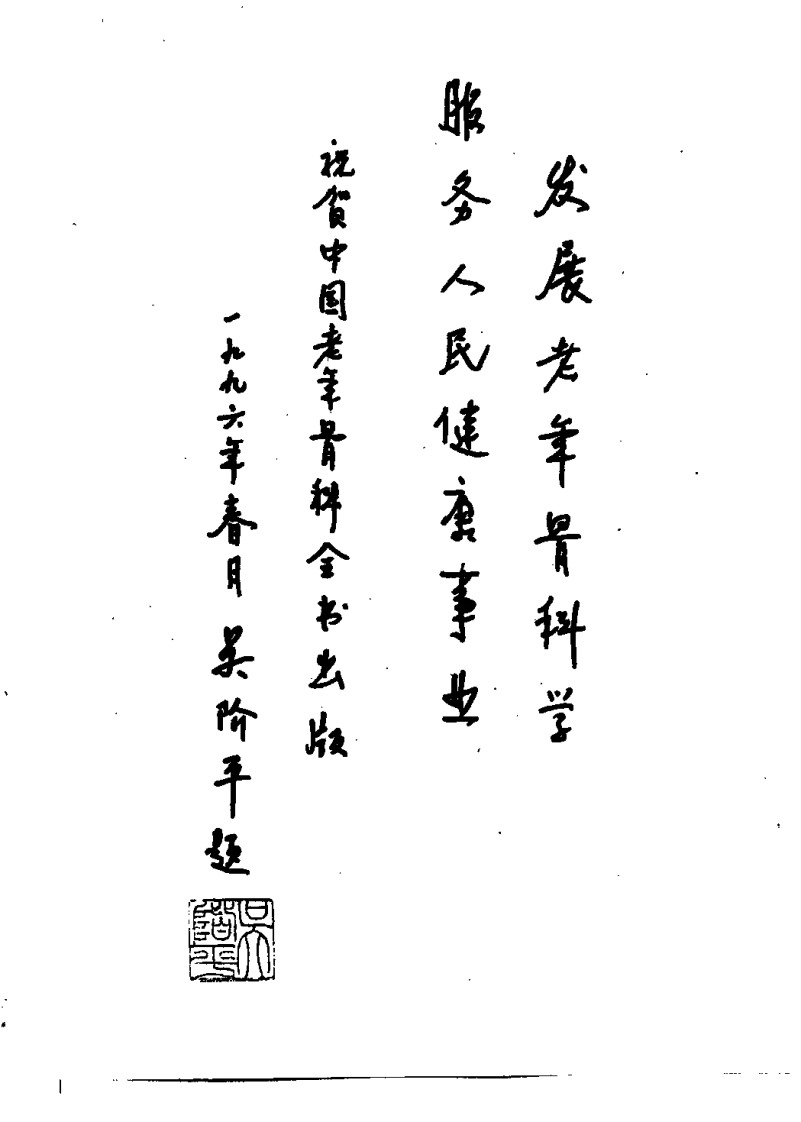 发展老年骨科学
服务人民健康事业
祝贺中国老年骨科全书出版
一九九六年春月 吴阶平题
吴阶平